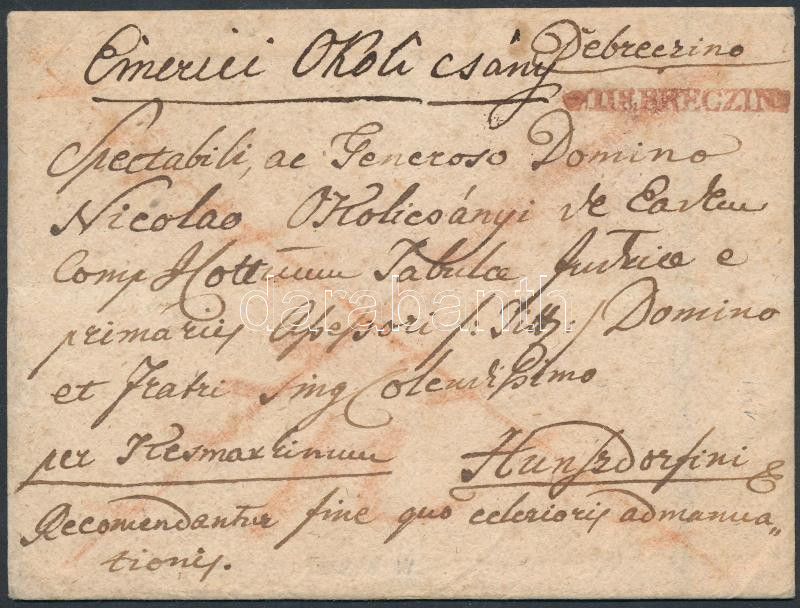 Debreczino
Emerici Okolicsány
DEBRECZIN
Spectabili, ac Generoso Domino
Nicolao Okolicsányi de Eadem
Comp Hottuum Tabulæ Judriæ e
primariis Assessori /: Titt: / Domino
et Fratri sing Colendissimo
per Kesmarkinum Hunszdorfini
Recomendantur fine quo celerioris admanua„
tionis.
darabanth